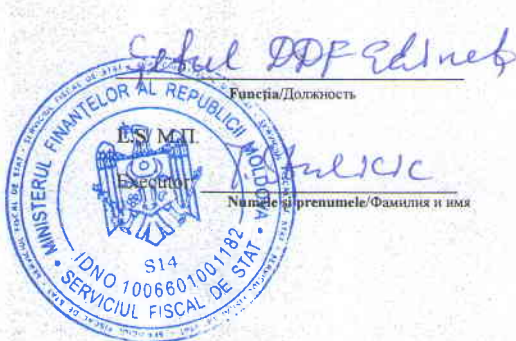 Șeful DDF Edineț
Funcția/Должность
L.Ș/ М.П.
Executor
Numele și prenumele/Фамилия и имя
MINISTERUL FINANȚELOR AL REPUBLICII MOLDOVA
S14
IDNO 1006601001182
SERVICIUL FISCAL DE STAT